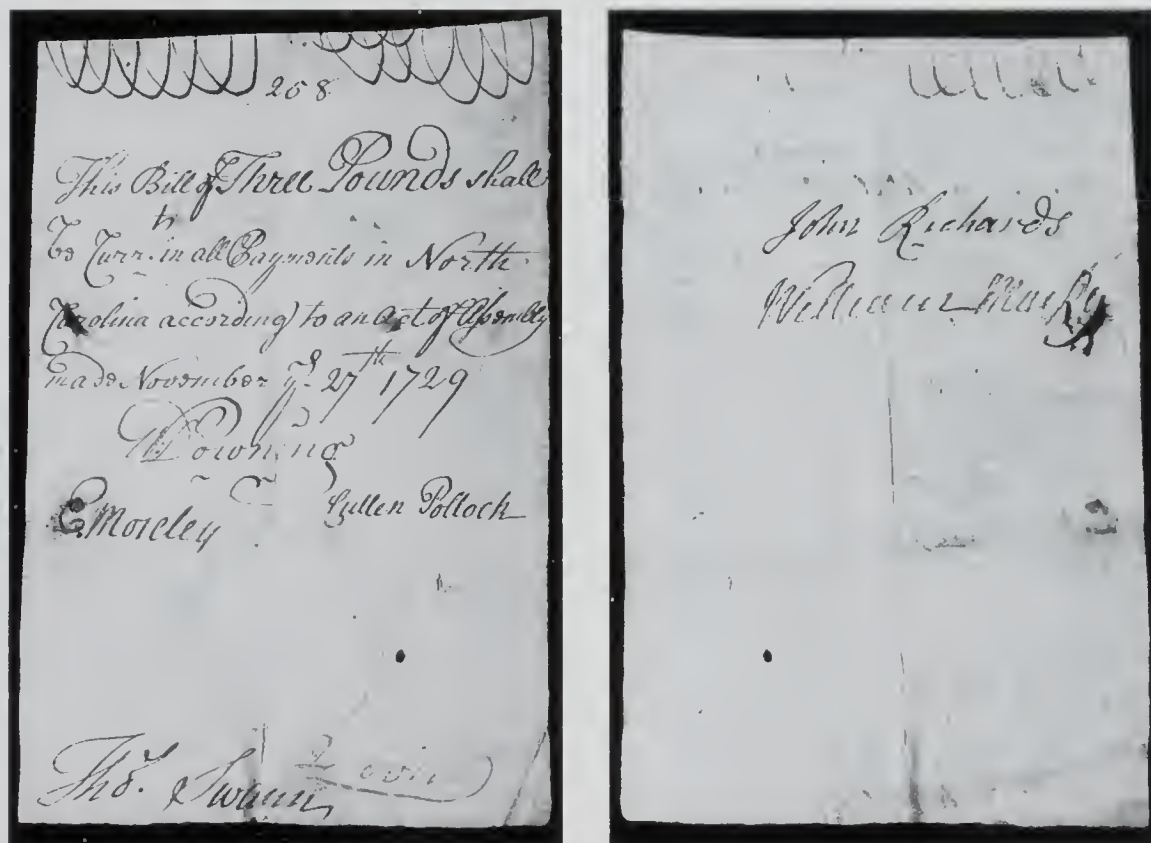 258
This Bill of Three Pounds shall
be Curr.t in all Payments in North
Carolina according to an Act of Assembly
made November ye 27th 1729
WDowning
EMoseley Cullen Pollock
Tho.s Swann
John Richards
William